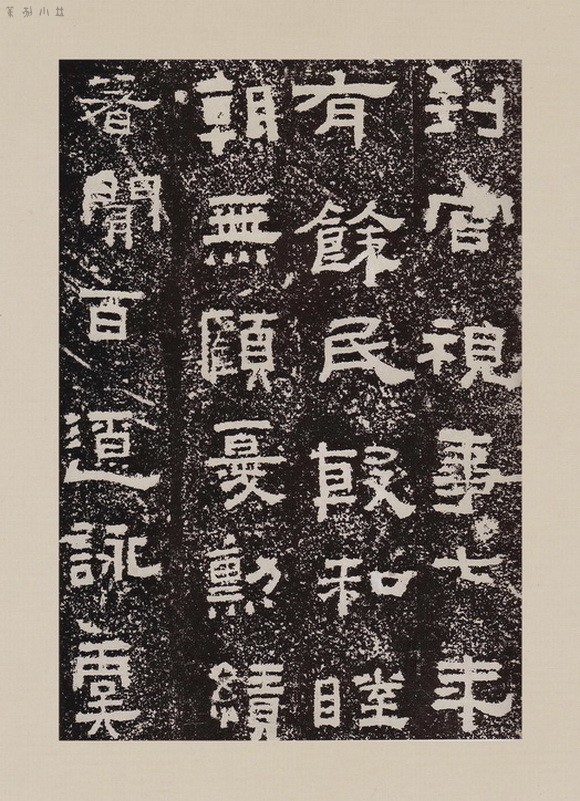 到官視事七年
有餘民殷和睦
朝無顧憂勳績
著聞百遼詠虞
篆刻小